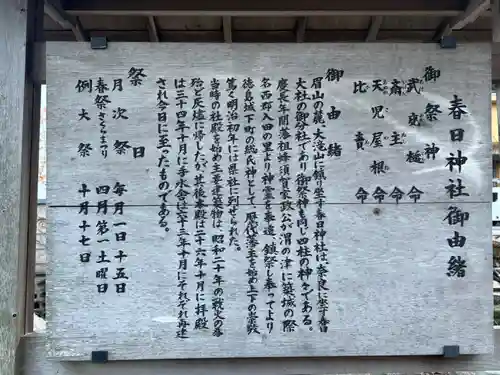 春日神社御由緒
御祭神
武甕槌命
斎主命
天児屋根命
比賣命
御由緒
眉山の麓、大滝山に鎮り坐す春日神社は、奈良に坐す春日
大社の御分社であり御祭神も同じ四柱の神々である。
慶長年間藩祖蜂須賀家政公が渭の津に築城の際
名西郡入田の里より神霊を奉遷、鎮祭し奉ってより
徳島城下町の総氏神として歴代藩主を始め上下の崇敬
篤く明治初年には県社に列せられた。
当時の社殿を始め主要建築物は、昭和二十年の戦火の為
殆ど灰燼に帰したが、其後本殿は二十六年十月に拝殿
は三十四年十月に手水舎は六十三年十月にそれぞれ再建
され今日に至ったものである。
祭日
月次祭 毎月一日十五日
春祭さくらまつり 四月第一土曜日
例大祭 十月十七日